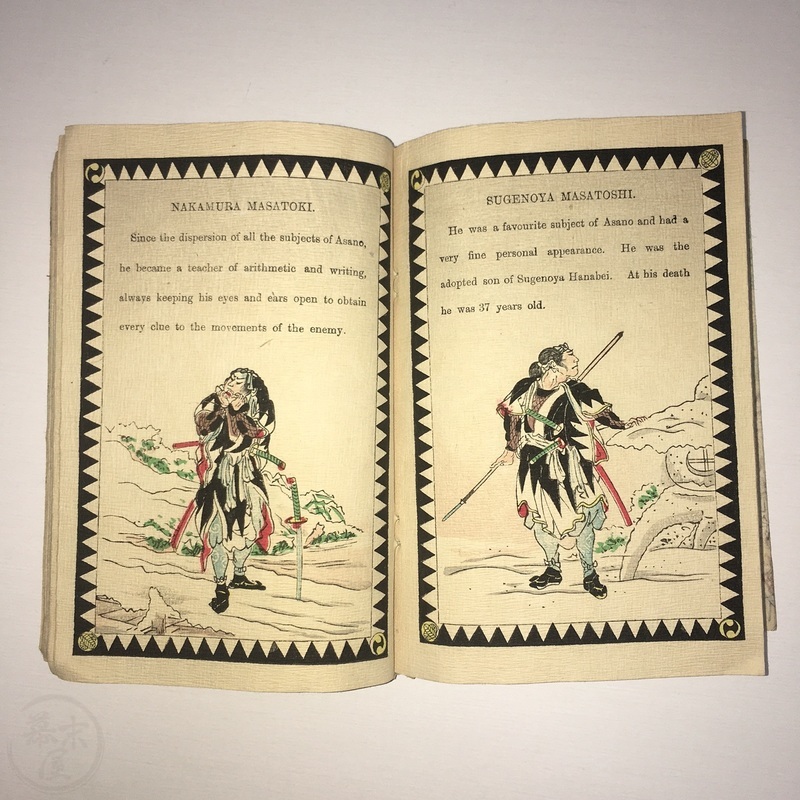 NAKAMURA MASATOKI.
Since the dispersion of all the subjects of Asano,
he became a teacher of arithmetic and writing,
always keeping his eyes and ears open to obtain
every clue to the movements of the enemy.
SUGENOYA MASATOSHI.
He was a favourite subject of Asano and had a
very fine personal appearance. He was the
adopted son of Sugenoya Hanabei. At his death
he was 37 years old.
幕末
屋